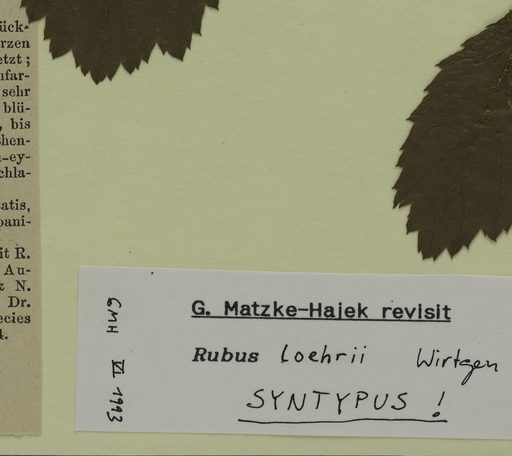 ück-
rzen
etzt;
nfar-
sehr
blü-
, bis
chen-
-ey-
chla-
atis,
pani-
it R.
Au-
& N.
Dr.
ecies
4.
G. Matzke-Hajek revisit
Rubus loehrii Wirtgen
SYNTYPUS !
GMH VI 1993